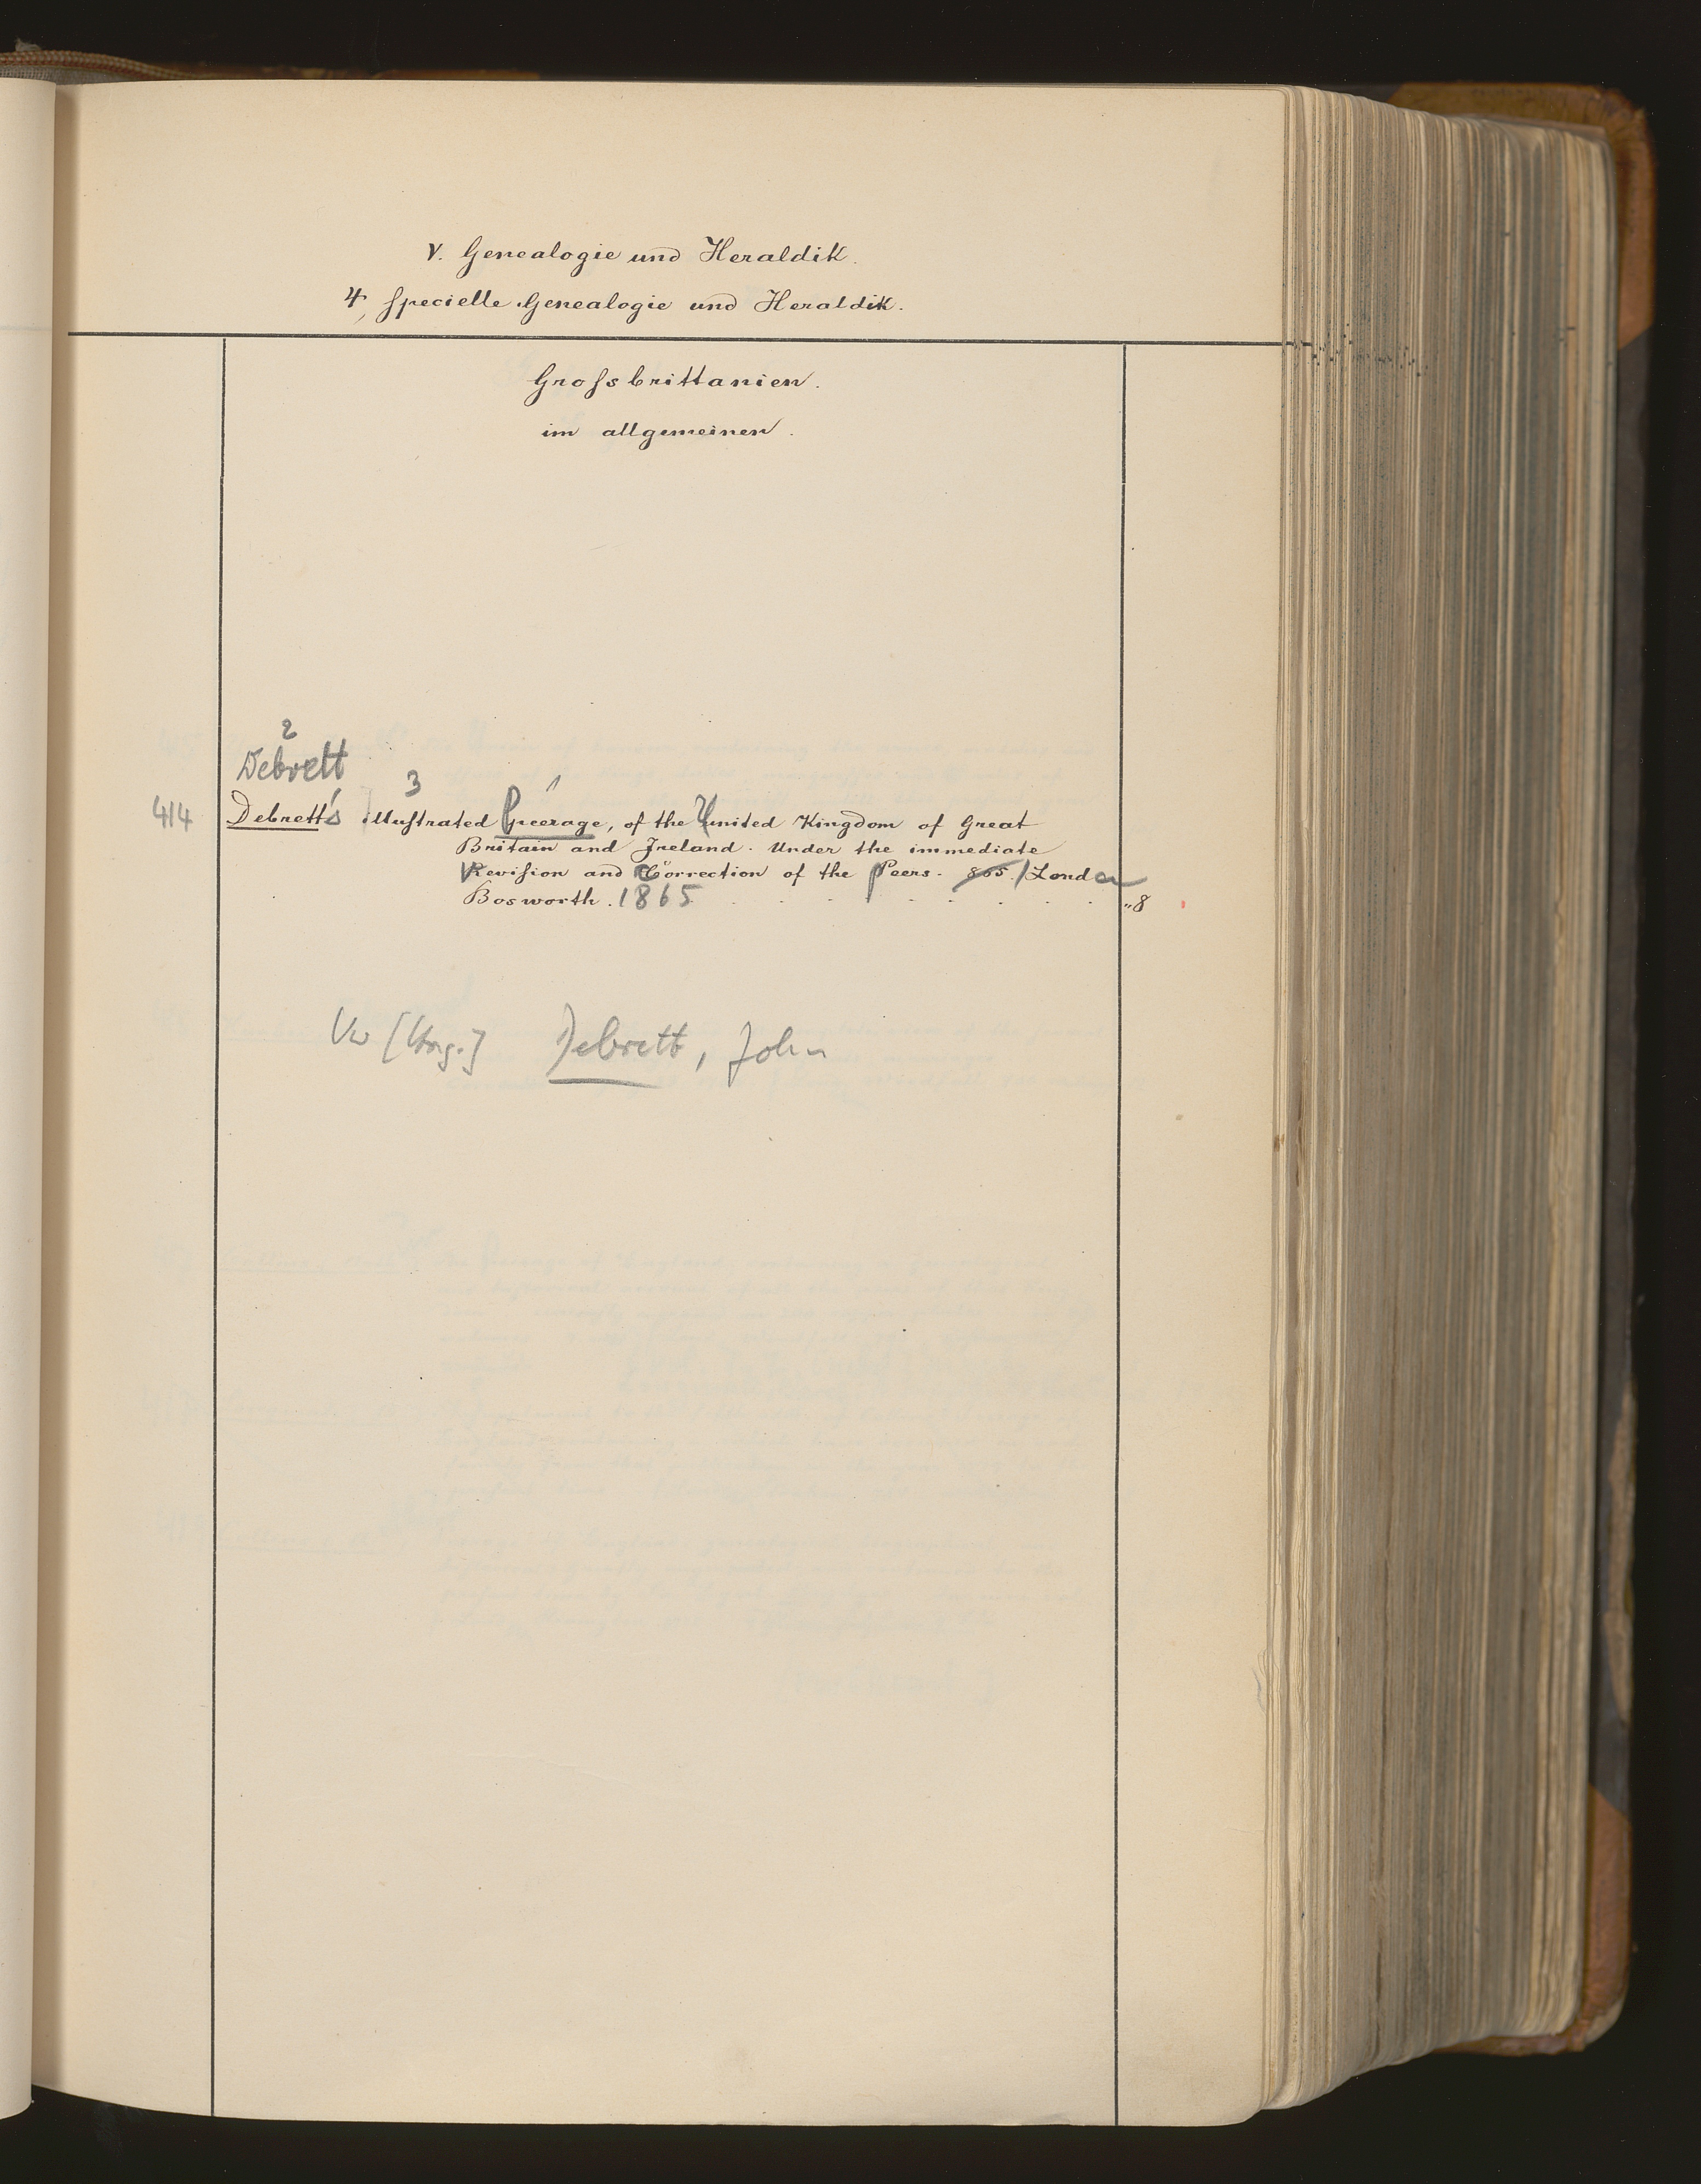 V. Genealogie und Heraldik.
4, specielle Genealogie und Heraldik.
Grossbrittanien.
im allgemeinen.
2
Debrett
3 1
414 Debrett's illustrated Peerage, of the United Kingdom of Great
Britain and Ireland. Under the immediate
Revision and Correction of the Peers. 865. / London
Bosworth. 1865 "8
Vw [Hrsg.] Debrett, John